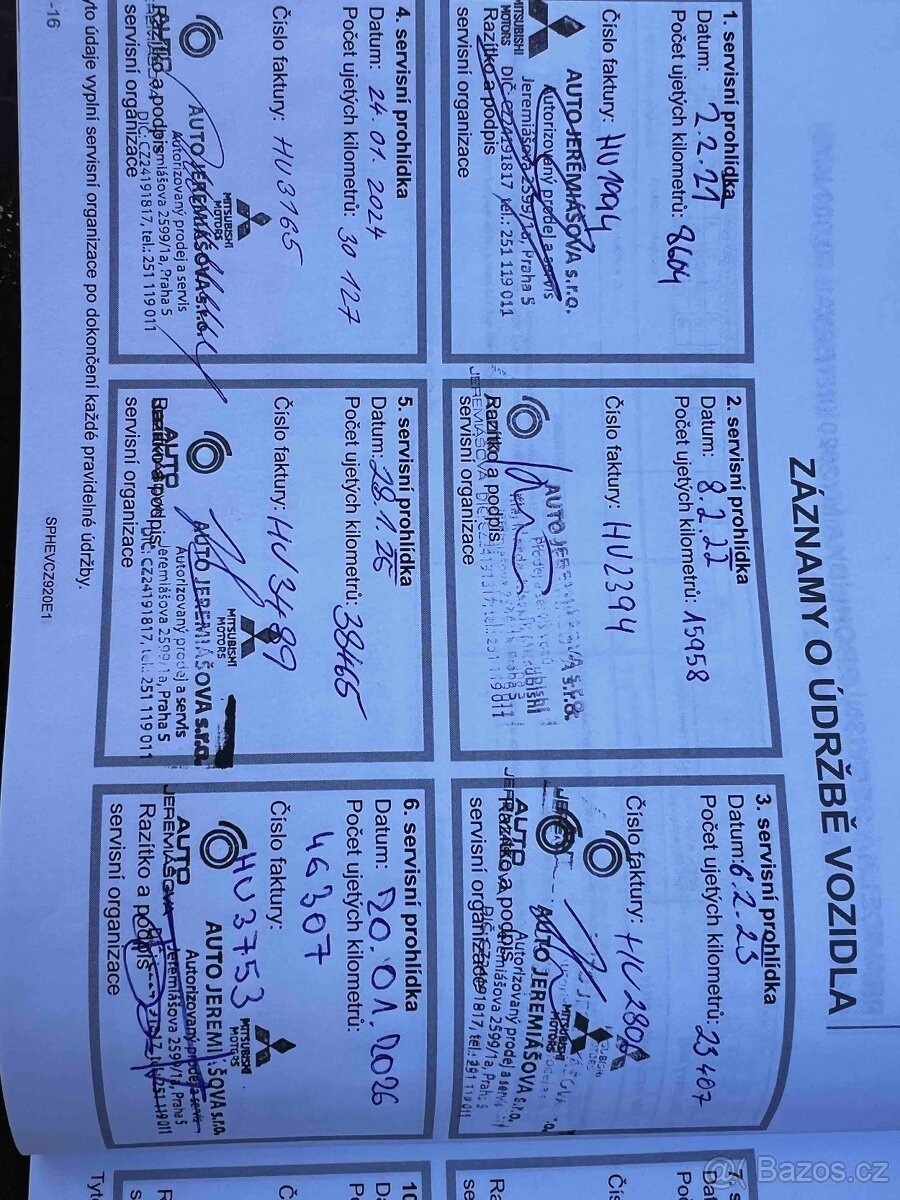 ZÁZNAMY O ÚDRŽBĚ VOZIDLA
1. servisní prohlídka
Datum: 2.2.21
Počet ujetých kilometrů: 8604
Číslo faktury: HU1994
MITSUBISHI
MOTORS
AUTO JEREMIÁŠOVA s.r.o.
Autorizovaný prodej a servis
Jeremiášova 2599/1a, Praha 5
DIČ: CZ24191817, tel.: 251 119 011
Razítko a podpis
servisní organizace
2. servisní prohlídka
Datum: 8.2.22
Počet ujetých kilometrů: 15958
Číslo faktury: HU2394
AUTO JEREMIÁŠOVA s.r.o.
Razítko a podpis
servisní organizace
JEREMIÁŠOVA
3. servisní prohlídka
Datum: 6.2.23
Počet ujetých kilometrů: 23407
Číslo faktury: HU2802
AUTO JEREMIÁŠOVA s.r.o.
Autorizovaný prodej a servis
Jeremiášova 2599/1a, Praha 5
AUTO
Razítko a podpis
servisní organizace
4. servisní prohlídka
Datum: 24.01.2024
Počet ujetých kilometrů: 30 127
Číslo faktury: HU3165
MITSUBISHI
MOTORS
AUTO JEREMIÁŠOVA s.r.o.
Autorizovaný prodej a servis
Jeremiášova 2599/1a, Praha 5
DIČ: CZ24191817, tel.: 251 119 011
AUTO
Razítko a podpis
servisní organizace
5. servisní prohlídka
Datum: 28.1.25
Počet ujetých kilometrů: 38465
Číslo faktury: HU3489
MITSUBISHI
MOTORS
AUTO JEREMIÁŠOVA s.r.o.
Autorizovaný prodej a servis
Jeremiášova 2599/1a, Praha 5
DIČ: CZ24191817, tel.: 251 119 011
AUTO
Razítko a podpis
servisní organizace
6. servisní prohlídka
Datum: 20.01.2026
Počet ujetých kilometrů:
46307
Číslo faktury:
HU3753
MITSUBISHI
MOTORS
AUTO JEREMIÁŠOVA s.r.o.
Autorizovaný prodej a servis
Jeremiášova 2599/1a, Praha 5
251 119 011
AUTO
JEREMIÁŠOVA
Razítko a podpis
servisní organizace
yto údaje vyplní servisní organizace po dokončení každé pravidelné údržby.
-16
SPHEVCZ920E1
7. s
Da
Poč
Čís
Raz
ser
10
Da
Po
Č
R
s
Tyto
Bazos.cz